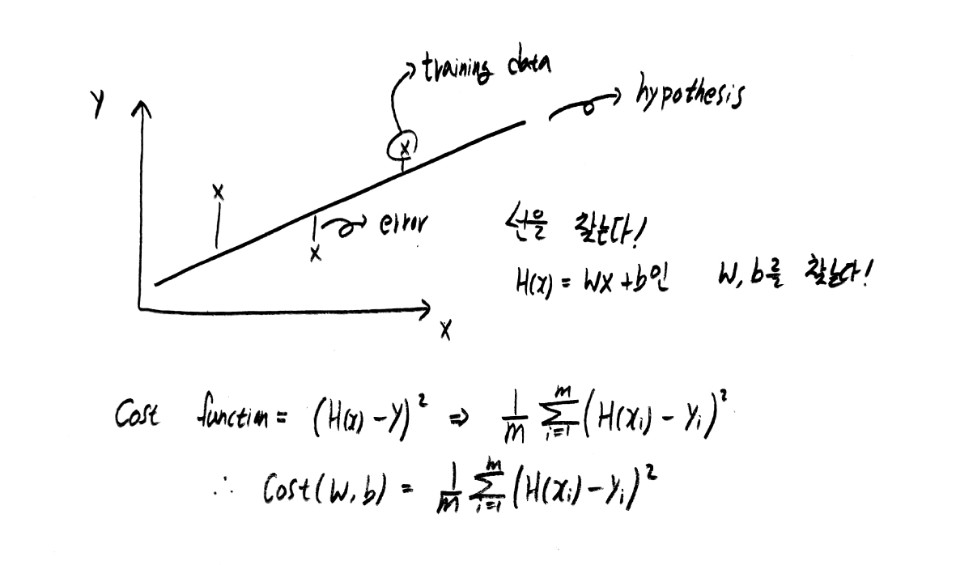 training data
Y
hypothesis
x
x
error
x
선을 찾는다!
H(x) = Wx + b인 W, b를 찾는다!
X
Cost function = (H(x) - y)² ⇒ 1/m ∑_{i=1}^{m} (H(x_i) - y_i)²
∴ Cost(W, b) = 1/m ∑_{i=1}^{m} (H(x_i) - y_i)²